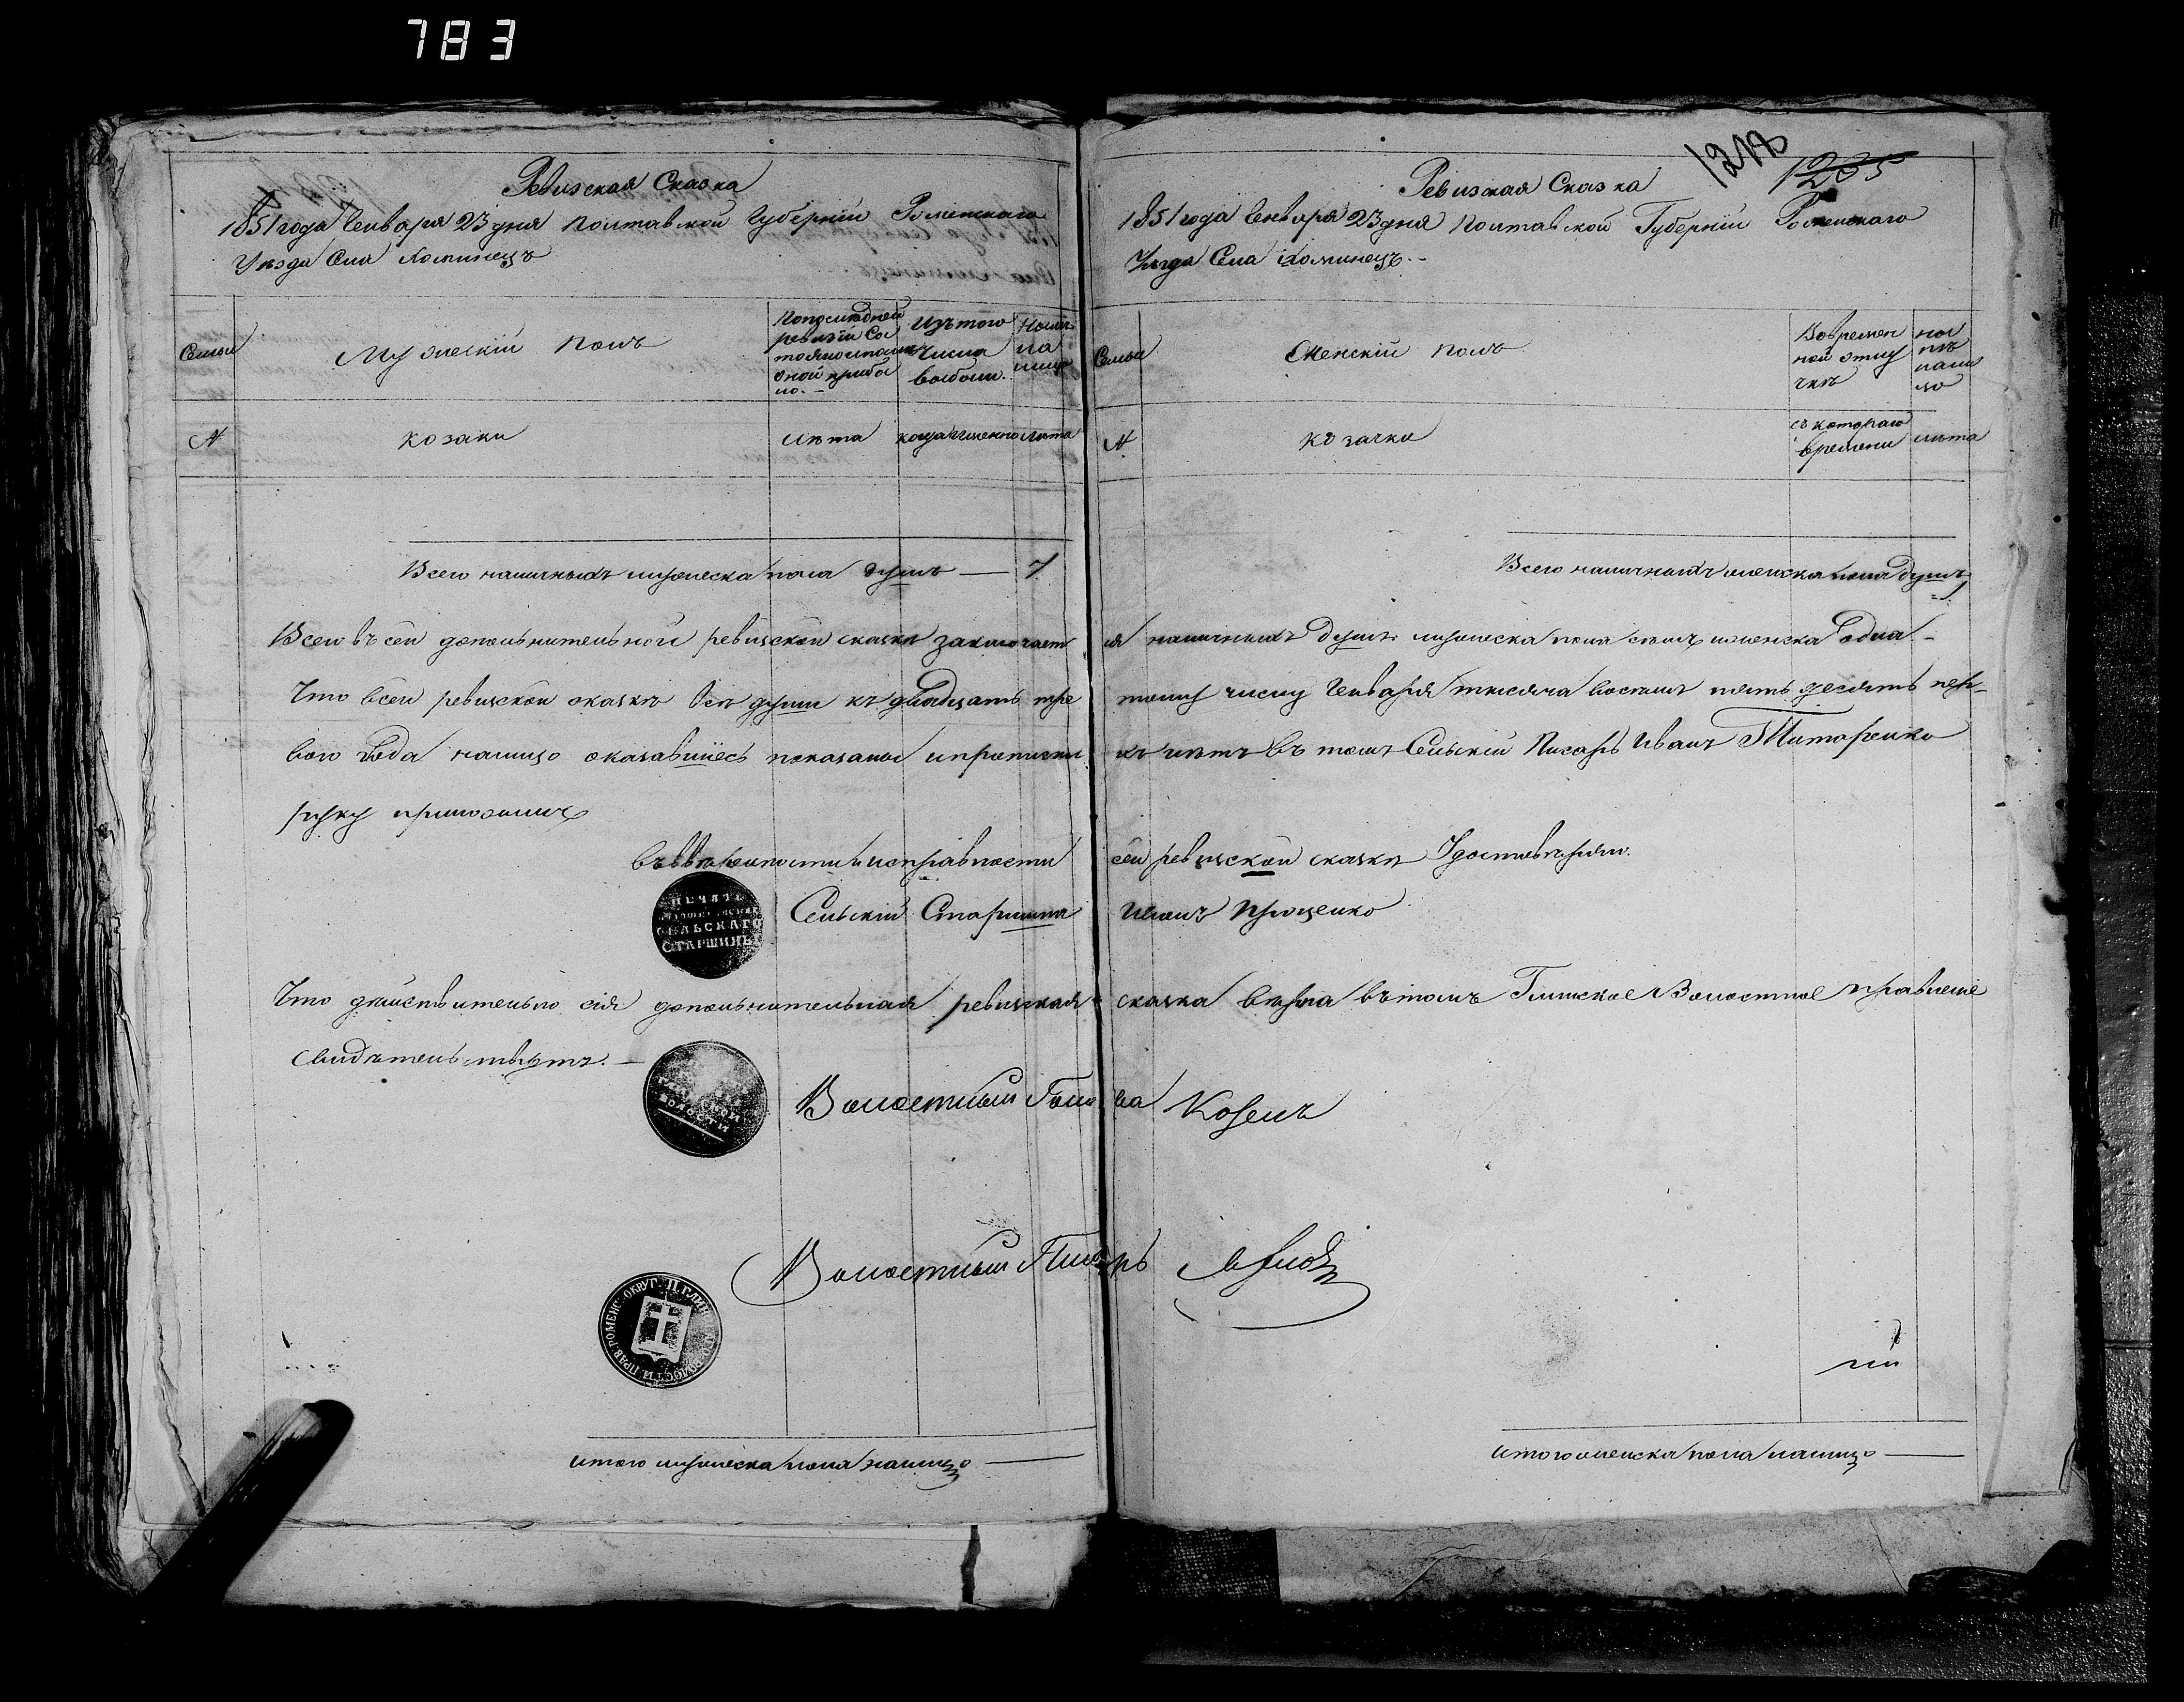 783
Ревизская Сказка
1851 года Генваря 23 дня Полтавской Губернїи Роменскаго
Уезда Села Хоминецъ
Семьи
Мужескїй полъ
По последней ревизїи состояло и после оной прибыло.
Изъ того числа выбыло.
Ныне на лицо
№
козаки
лѣта
когда именно
лѣта
Всего наличныхъ мужеска пола душъ — 7
Ревизская Сказка
1218
1235
1851 года Генваря 23 дня Полтавской Губернїи Роменскаго
Уезда Села Хоминецъ. -
Семьи
Женскїй полъ
Во временной отлучкѣ
ныне на лицо
№
козачки
съ котораго времени
лѣта
Всего наличныхъ женска пола душъ 1
Всего въ сей дополнительной ревизской сказки заключается наличныхъ душъ мужеска пола семь женска одна -
Что в сей ревизской сказкѣ Все души къ двадцать третому числу Генваря тысяча восемъ пять десятъ первого года налицо оказавшїесь показаны и прописныхъ нѣтъ въ томъ Сельскїй Писарь Иванъ Титаренко
руку приложилъ
Въ вѣрности и исправности сей ревизской сказки Удостоверяю.
ПЕЧАТЬ
СЕЛЬСКАГО
СТАРШИНЫ
Сельскїй Старшина Проценко
Что дѣйствительно сїя дополнительная ревизская сказка верна въ томъ Глинское Волостное правленїе
Свидѣтельствуетъ. —
ВОЛОСТИ
Волостный Голова Козелъ
Волостный Писарь
РОМЕНС. ОКРУГ.
итого мужеска пола налицо —
итого женска пола налицо —